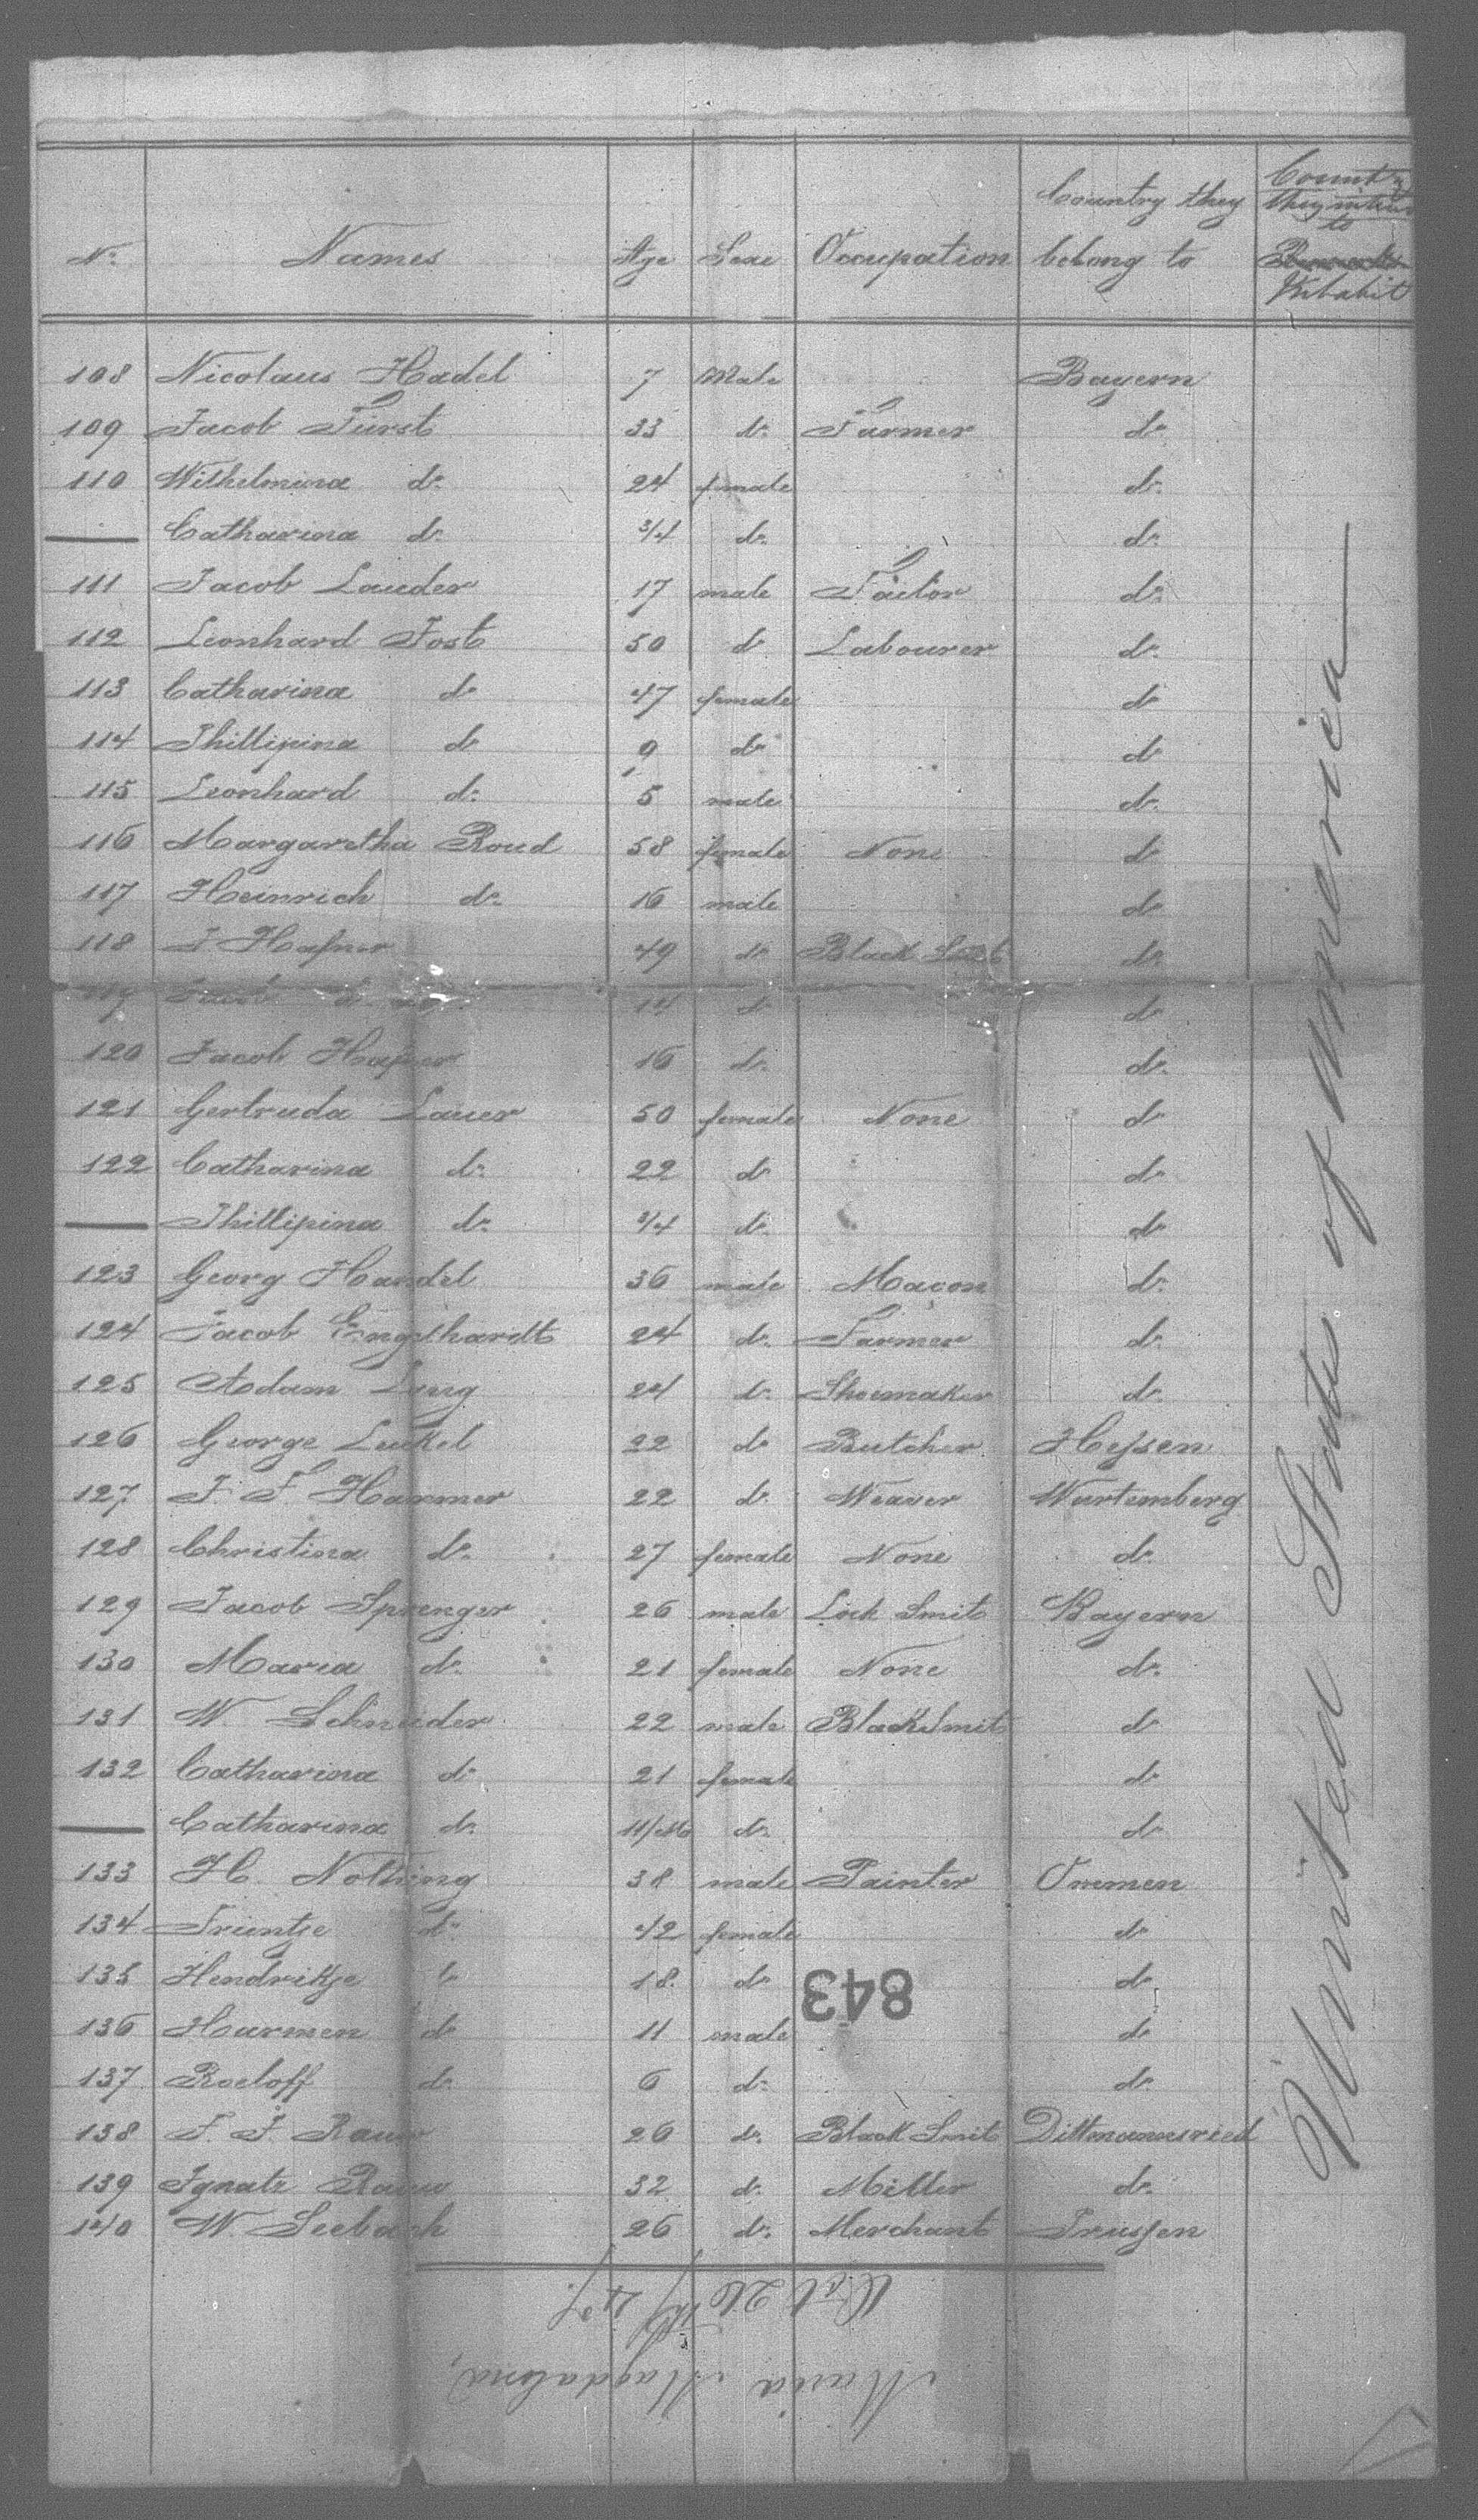 Nº Names Age Sexe Occupation Country they belong to Country they intend to Inhabit
108 Nicolaus Hadel 7 Male Bayern
109 Jacob Fürst 33 dº Farmer dº
110 Wilhelmina dº 24 female dº
— Catharina dº 3/4 dº dº
111 Jacob Lauder 17 male Tailor dº
112 Leonhard Jost 50 dº Labourer dº
113 Catharina dº 47 female dº
114 Phillipina dº 9 dº dº
115 Leonhard dº 5 male dº
116 Margaretha Roud 58 female None dº
117 Heinrich dº 16 male dº
118 J Hafner 49 dº Black Smit dº
119 14 dº dº
120 Jacob Hafner 16 dº dº
121 Gertruda Lauer 50 female None dº
122 Catharina dº 22 dº dº
— Phillipina dº 3/4 dº dº
123 Georg Handel 36 male Macon dº
124 Jacob Engelhardt 24 dº Farmer dº
125 Adam Lung 24 dº Shoemaker dº
126 George Leukel 22 dº Butcher Hessen
127 J. F. Hammer 22 dº Weaver Wurtemberg
128 Christina dº 27 female None dº
129 Jacob Sprenger 26 male Lock Smit Bayern
130 Maria dº 21 female None dº
131 W. Schneider 22 male BlackSmit dº
132 Catharina dº 21 female dº
— Catharina dº 11/M dº dº
133 H. Nolting 38 male Painter Ommen
134 Trientje dº 42 female dº
135 Hendrikje dº 18 dº dº
136 Harmen dº 11 male dº
137 Roeloff dº 6 dº dº
138 F. J. Rauw 26 dº Black Smit Dittmannsried
139 Ignatz Rauw 32 dº Miller dº
140 W Seebach 26 dº Merchant Prussen
United States of America
843
Maria Magdalena,
Oct 26th / 47